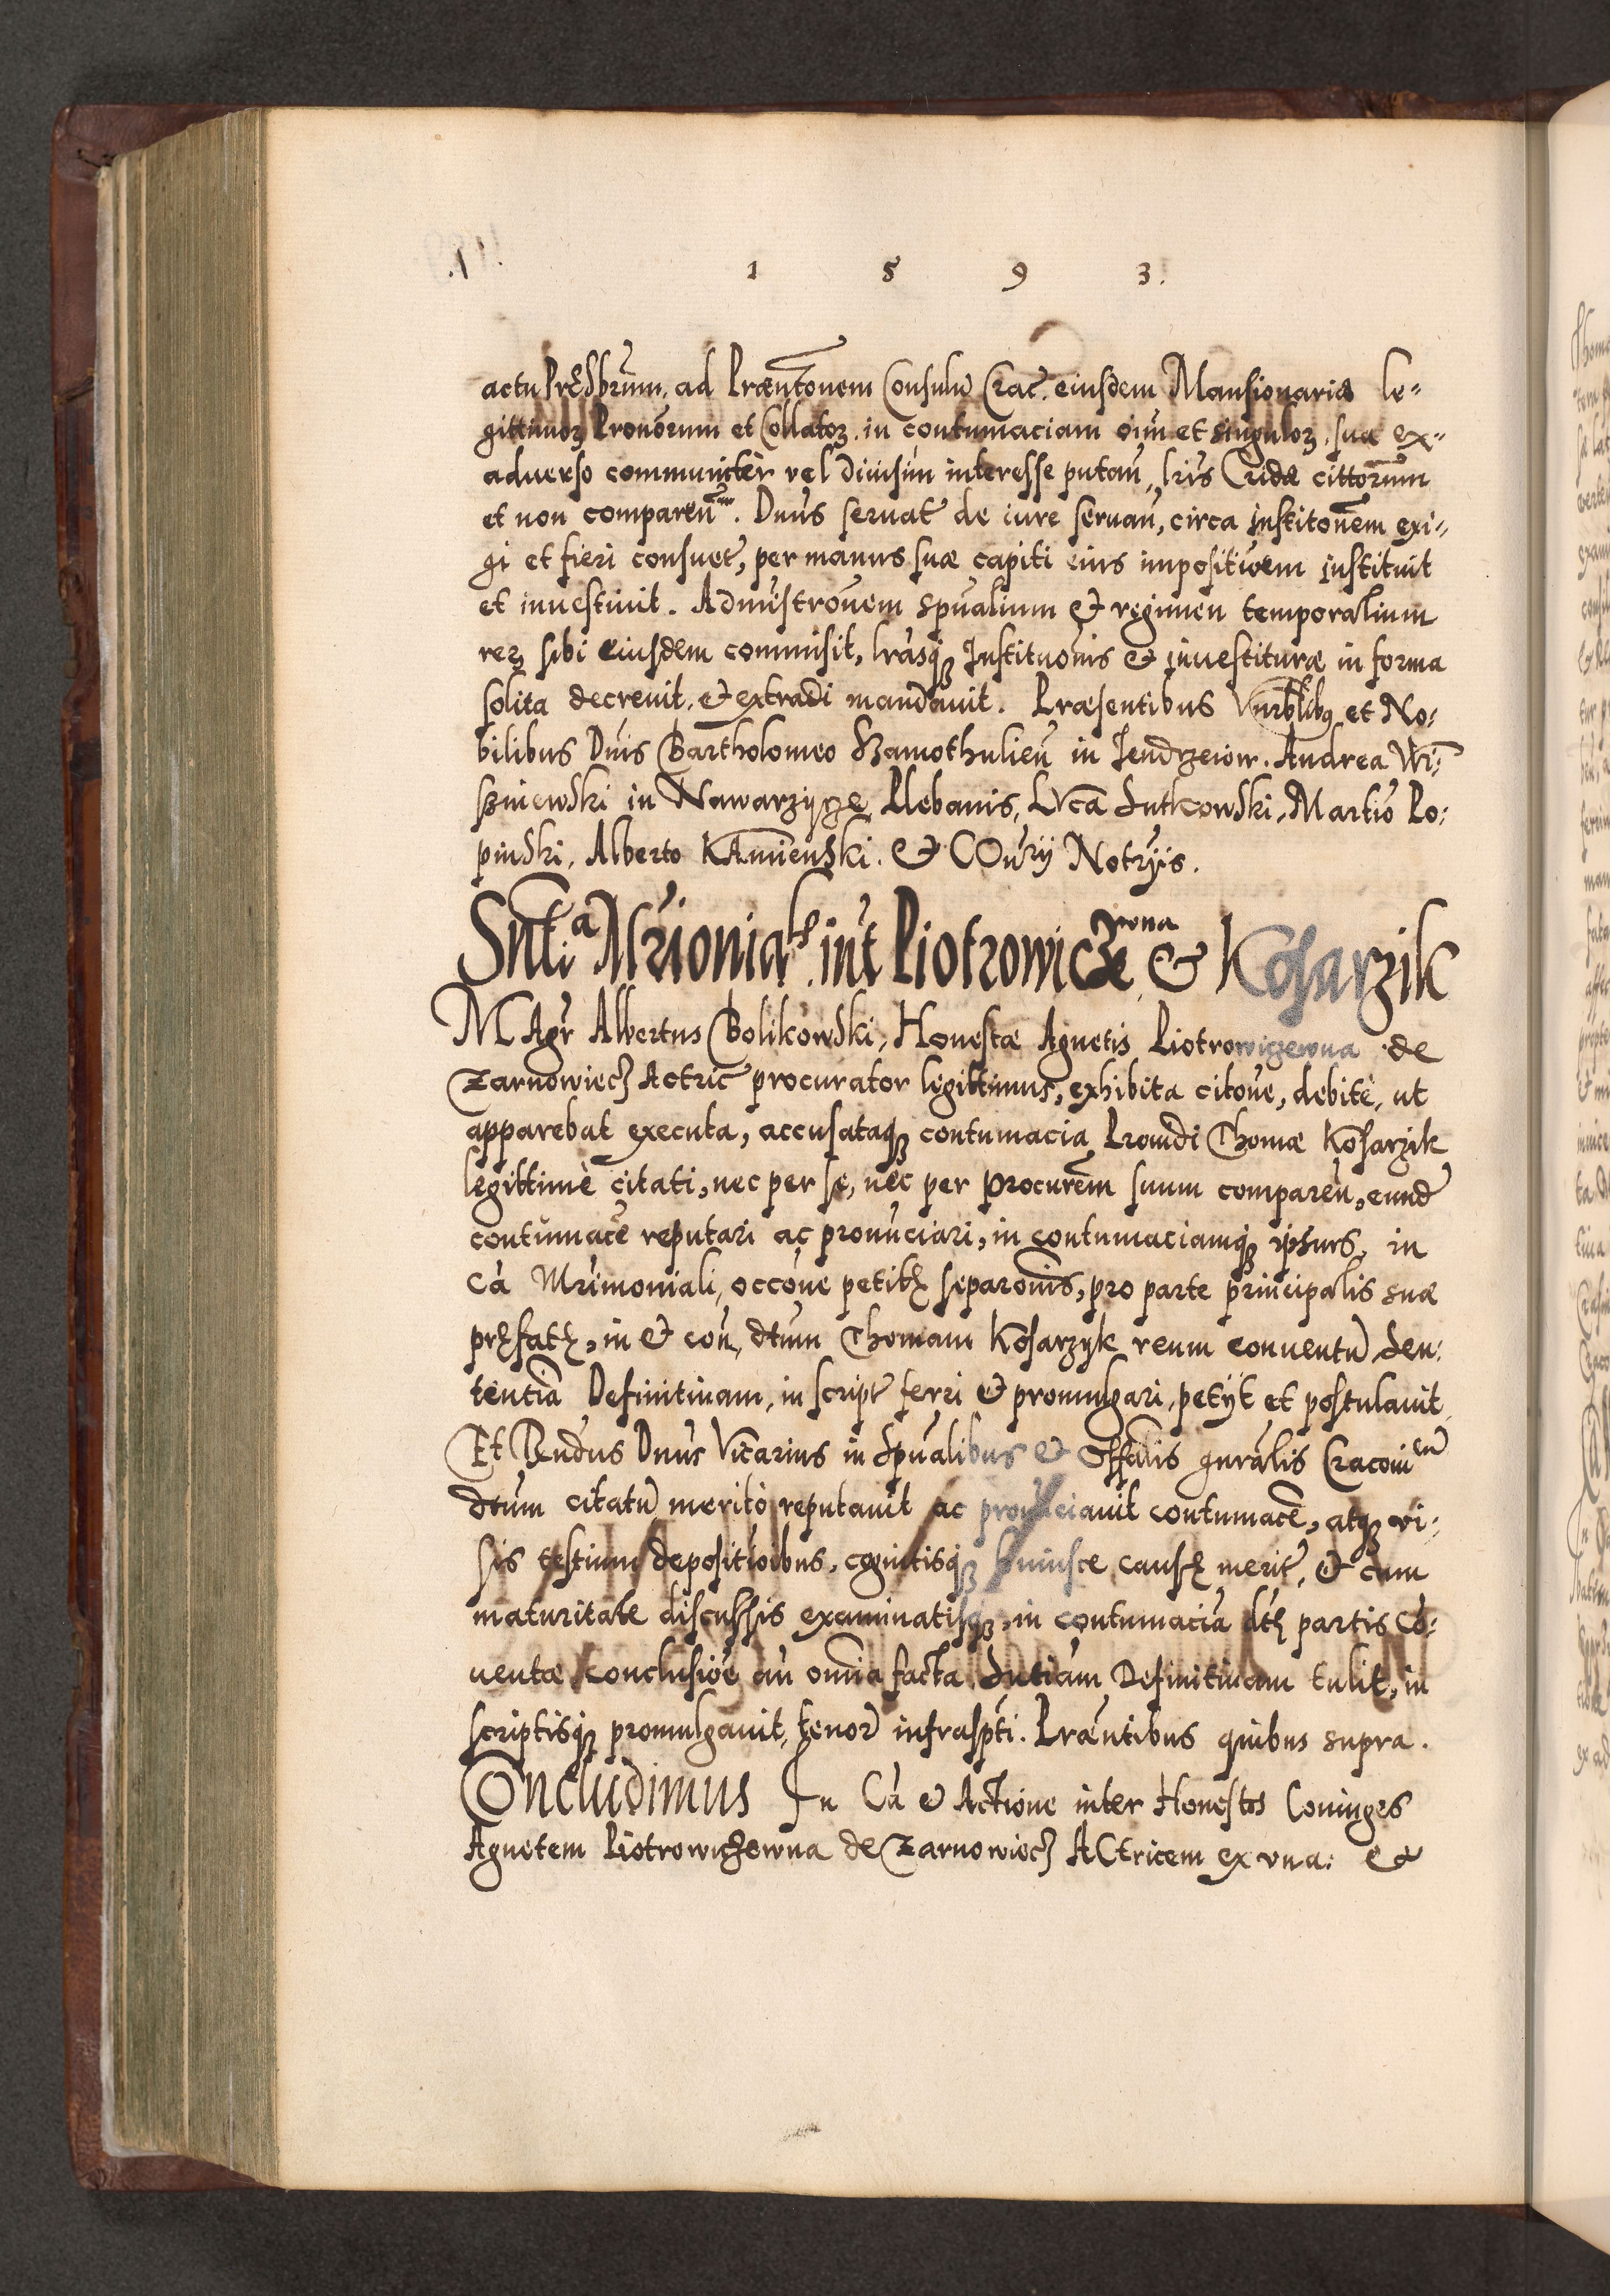 1 5 9 3.
actu Pręsbrum, ad Præntonem Consulu Crac. eiusdem Mansionariæ le-
gittimoꝝ Provorum et Collatoꝝ. in contumaciam oīm et singuloꝝ, sua ex-
adverso communiter vel diuisim interesse putan, lris Cridæ cittorum
et non comparen. Dnus seruat de iure seruan, circa institonem exi-
gi et fieri consuet, per manus suæ capiti eius impositioem instituit
et inuestiuit. Administrouem spualium & regimen temporalium
reꝝ sibi eiusdem commisit, lrasqꝫ Institutionis & inuestituræ in forma
solita decreuit, & extradi mandauit. Præsentibus Vnrblibꝯ et No-
bilibus Dnis Bartholomeo Szamothulien in Jendrzeiow. Andrea Wi-
szniewski in Nawarzycze Plebanis, Lvca Sutkowski, Martio Po-
pinski, Alberto KAmienski. & COurij Notrijs.
Snti^a Mrionialꝭ int Piotrowicze^wna & Kosarzik
MAgr Albertus Bolikowski, Honestæ Agnetis Piotrowiczewna de
Zarnowiecz Actric procurator legittimus, exhibita citoue, debitè, ut
apparebat executa, accusataqꝫ contumacia Prouidi Thomæ Kosarzik
legittimè citati, nec per se, nec per procurem suum comparen, eund
contumace reputari ac pronunciari, in contumaciamqꝫ ipsius, in
Ca Mrimoniali, occone petitę separonis, pro parte principalis suæ
pręfatę, in & con, dtum Thomam Kosarzyk reum conuentu, Sen-
tentia Definitiuam, in script ferri & promulgari, petijt et postulauit
Et Rendus Dnus Vicarius in Spualibus & Offalis gnralis Cracouien
dtum citatu merito reputauit ac pronunciauit contumace, atqꝫ vi-
sis testium depositioibus, cognitisqꝫ huiusce causę merit, & cum
maturitate discussis examinatisqꝫ, in contumacia dtę partis Co-
uentæ conclusioe an omnia facta Sntiam Definitiuam tulit, in
scriptisqꝫ promulgauit, tenor infraspti. Præntibus quibus supra.
COncludimus In Ca & Actione inter Honestos Coniuges
Agnetem Piotrowiczewna de Zarnowiecz ACtricem ex vna: &